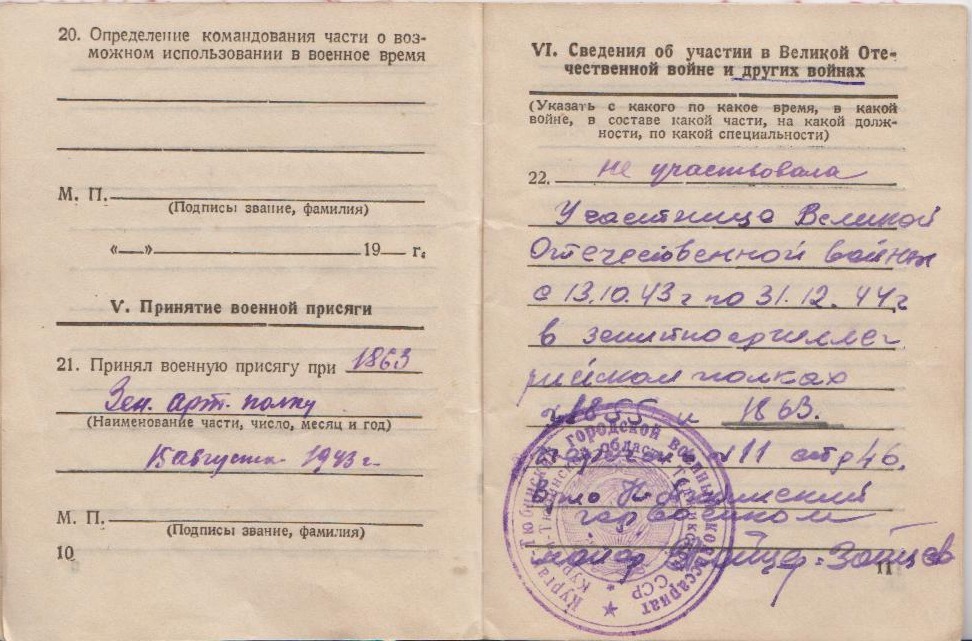 20. Определение командования части о воз-
можном использовании в военное время
М. П.
(Подписы звание, фамилия)
«—» 19 г.
V. Принятие военной присяги
21. Принял военную присягу при 1863
Зен. арт. полку
(Наименование части, число, месяц и год)
15 августа 1943 г.
М. П.
(Подписы звание, фамилия)
10
VI. Сведения об участии в Великой Оте-
чественной войне и других войнах
(Указать с какого по какое время, в какой
войне, в составе какой части, на какой долж-
ности, по какой специальности)
22. не участвовала
Участница Великой
Отечественной войны
с 13.10.43 г по 31.12.44 г
в зенитноартиллег
рийском полках
1855 и 1863.
N 11 стр 46.
горвоенком
майор Зайцев
11
Курган-Тюбинский городской военный комиссариат
Курган-Тюбинской области Таджикской ССР